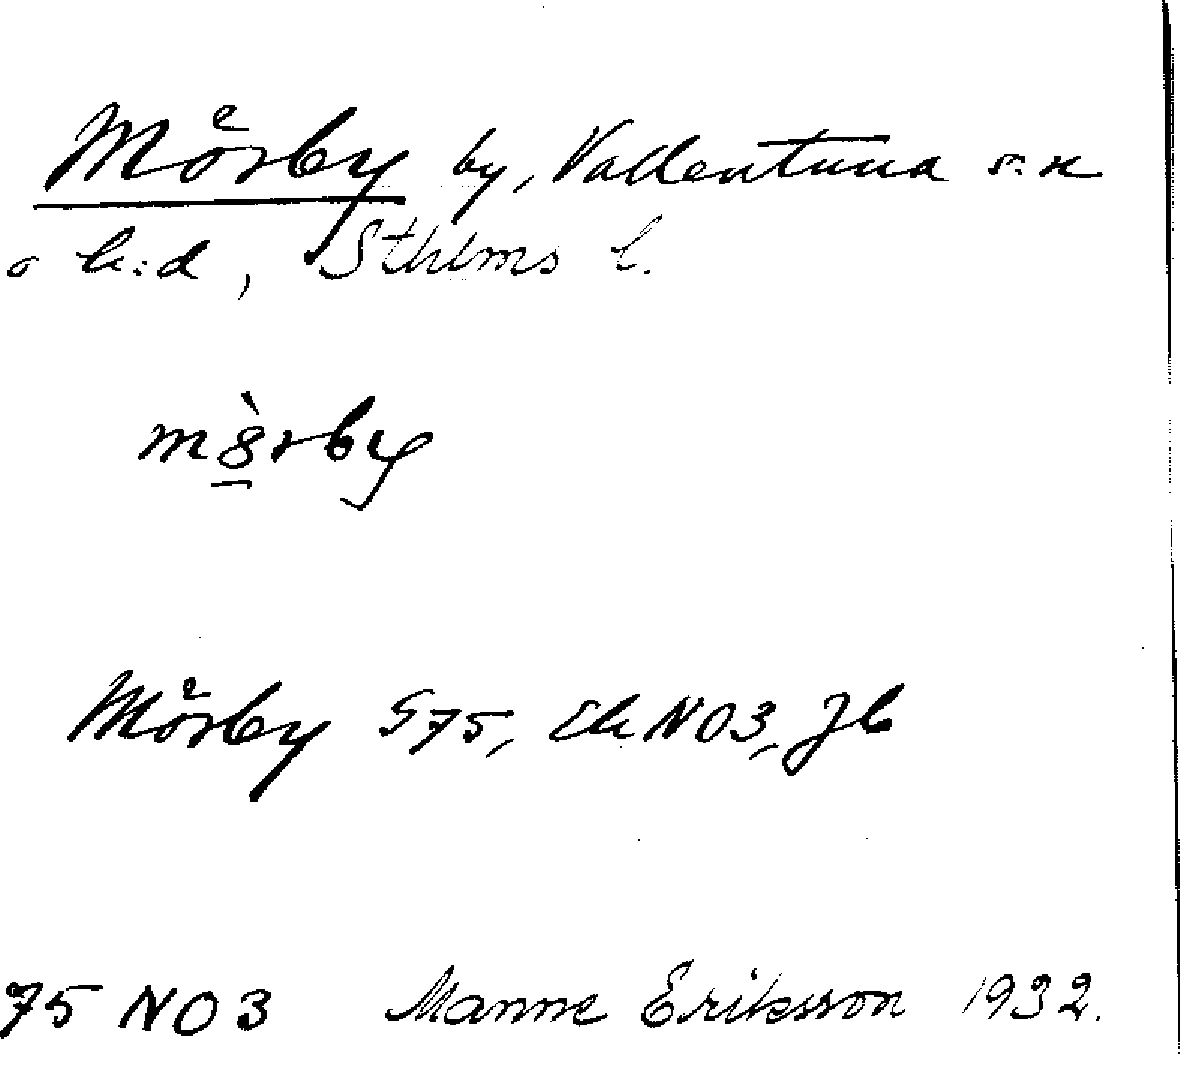 Mörby by, Vallentuna s:n
o h:d, Sthlms l.
mö̀rby
Mörby G75, Ek NO3, Jb
75 NO3 Manne Eriksson 1932.